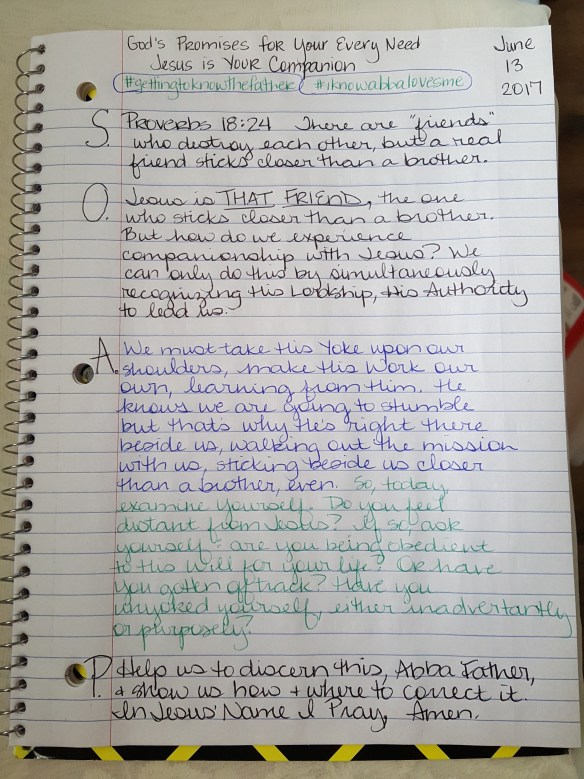 God's Promises for Your Every Need
Jesus is Your Companion
June
13
2017
#gettingtoknowthefather #iknowabbalovesme
S. Proverbs 18:24 There are "friends"
who destroy each other, but a real
friend sticks closer than a brother.
O. Jesus is THAT FRIEND, the one
who sticks closer than a brother.
But how do we experience
companionship with Jesus? We
can only do this by simultaneously
recognizing His Lordship, His Authority
to lead us.
A. We must take His Yoke upon our
shoulders, make His Work our
own, learning from Him. He
knows we are going to stumble
but that's why He's right there
beside us, walking out the mission
with us, sticking beside us closer
than a brother, even. So, today,
examine yourself. Do you feel
distant from Jesus? If so, ask
yourself: are you being obedient
to His will for your life? Or have
you gotten off track? Have you
unyoked yourself, either inadvertantly
or purposely?
P. Help us to discern this, Abba Father,
+ show us how + where to correct it.
In Jesus' Name I Pray, Amen.